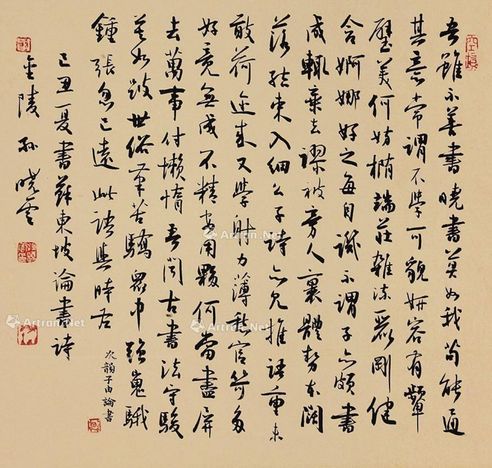 吾雖不善書曉書莫如我苟能通
其意常謂不學可貌妍容有顰
璧美何妨橢端莊雜流麗剛健
含婀娜好之每自譏不謂子亦頗書
成輒棄去謬被旁人裹體勢本闊
落結束入細么子詩亦見推語重未
敢荷迩來又學射力薄愁官笴多
好竟無成不精安用夥何當盡屏
去萬事付懶惰吾聞古書法守駿
莫如跛世俗筆苦驕眾中強嵬騀
鍾張忽已遠此語與時左
次韻子由論書
己丑夏書蘇東坡論書詩
金陵孫曉雲
Artron.Net